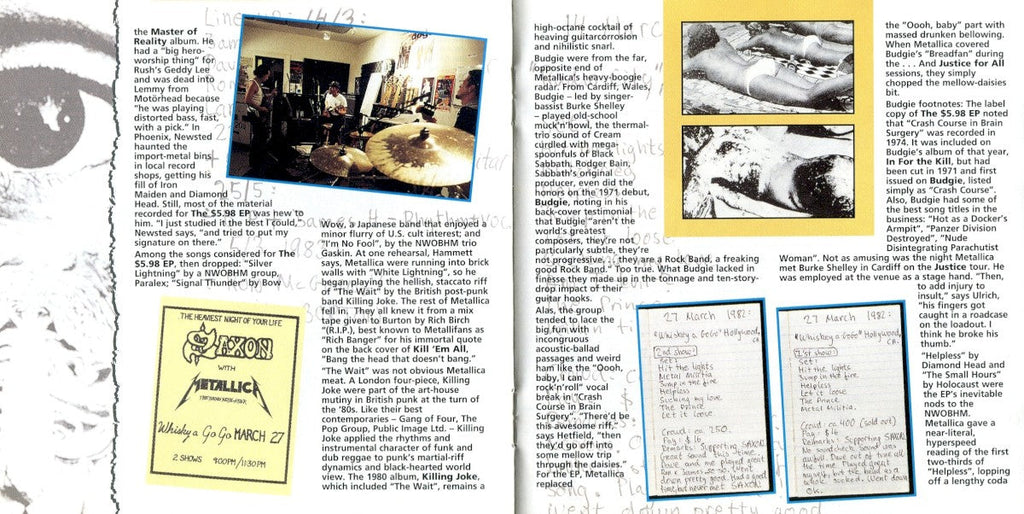 the Master of
Reality album. He
had a "big hero-
worship thing" for
Rush's Geddy Lee
and was dead into
Lemmy from
Motörhead because
"he was playing
distorted bass, fast,
with a pick." In
Phoenix, Newsted
haunted the
import-metal bins
in local record
shops, getting his
fill of Iron
Maiden and Diamond
Head. Still, most of the material
recorded for The $5.98 EP was new to
him. "I just studied it the best I could,"
Newsted says, "and tried to put my
signature on there."
Among the songs considered for The
$5.98 EP, then dropped: "Silver
Lightning" by a NWOBHM group,
Paralex; "Signal Thunder" by Bow
THE HEAVIEST NIGHT OF YOUR LIFE
SAXON
WITH
METALLICA
Whisky a Go Go MARCH 27
2 SHOWS 9:00PM/11:30PM
Wow, a Japanese band that enjoyed a
minor flurry of U.S. cult interest; and
"I'm No Fool", by the NWOBHM trio
Gaskin. At one rehearsal, Hammett
says, Metallica were running into brick
walls with "White Lightning", so he
began playing the hellish, staccato riff
of "The Wait" by the British post-punk
band Killing Joke. The rest of Metallica
fell in. They all knew it from a mix
tape given to Burton by Rich Birch
"(R.I.P.), best known to Metallifans as
"Rich Banger" for his immortal quote
on the back cover of Kill 'Em All,
"Bang the head that doesn't bang."
"The Wait" was not obvious Metallica
meat. A London four-piece, Killing
Joke were part of the art-house
mutiny in British punk at the turn of
the '80s. Like their best
contemporaries – Gang of Four, The
Pop Group, Public Image Ltd. – Killing
Joke applied the rhythms and
instrumental character of funk and
dub reggae to punk's martial-riff
dynamics and black-hearted world
view. The 1980 album, Killing Joke,
which included "The Wait", remains a
high-octane cocktail of
heaving guitarcorrosion
and nihilistic snarl.
Budgie were from the far,
opposite end of
Metallica's heavy-boogie
radar. From Cardiff, Wales,
Budgie – led by singer-
bassist Burke Shelley
– played old-school
muck'n'howl, the thermal-
trio sound of Cream
curdled with mega-
spoonfuls of Black
Sabbath. Rodger Bain,
Sabbath's original
producer, even did the
honors on the 1971 debut,
Budgie, noting in his
back-cover testimonial
that Budgie "aren't the
world's greatest
composers, they're not
particularly subtle, they're
not progressive, ... they are a Rock Band, a freaking
good Rock Band." Too true. What Budgie lacked in
finesse they made up in the tonnage and ten-story-
drop impact of their
guitar hooks.
Alas, the group
tended to lace the
big fun with
incongruous
acoustic-ballad
passages and weird
ham like the "Oooh,
baby, I can
rock'n'roll" vocal
break in "Crash
Course in Brain
Surgery". "There'd be
this awesome riff,"
says Hetfield, "then
they'd go off into
some mellow trip
through the daisies."
For the EP, Metallica
replaced
27 March 1982:
"Whiskey a GoGo" Hollywood,
CA.
2nd show:
Set:
Hit the lights
Metal militia
Jump in the fire
Helpless
Sucking my love
The Prince
Let it loose
Crowd: ca 250.
Pay: $16
Remarks: Supporting SAXON
27 March 1982:
"Whiskey a GoGo" Hollywood,
CA.
1st show:
Set:
Hit the lights
Jump in the fire
Helpless
Let it loose
The Prince
Metal Militia.
Crowd: ca 400 (sold out)
Pay: $16
Remarks: Supporting SAXON
the "Oooh, baby" part with
massed drunken bellowing.
When Metallica covered
Budgie's "Breadfan" during
the . . . And Justice for All
sessions, they simply
chopped the mellow-daisies
bit.
Budgie footnotes: The label
copy of The $5.98 EP noted
that "Crash Course in Brain
Surgery" was recorded in
1974. It was included on
Budgie's album of that year,
In For the Kill, but had
been cut in 1971 and first
issued on Budgie, listed
simply as "Crash Course".
Also, Budgie had some of
the best song titles in the
business: "Hot as a Docker's
Armpit", "Panzer Division
Destroyed", "Nude
Disintegrating Parachutist
Woman". Not as amusing was the night Metallica
met Burke Shelley in Cardiff on the Justice tour. He
was employed at the venue as a stage hand. "Then,
to add injury to
insult," says Ulrich,
"his fingers got
caught in a roadcase
on the loadout. I
think he broke his
thumb."
"Helpless" by
Diamond Head and
"The Small Hours"
by Holocaust were
the EP's inevitable
nods to the
NWOBHM.
Metallica gave a
near-literal,
hyperspeed
reading of the first
two-thirds of
"Helpless", lopping
off a lengthy coda